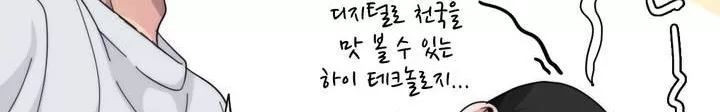 디지털로 천국을
맛 볼 수 있는
하이 테크놀로지...